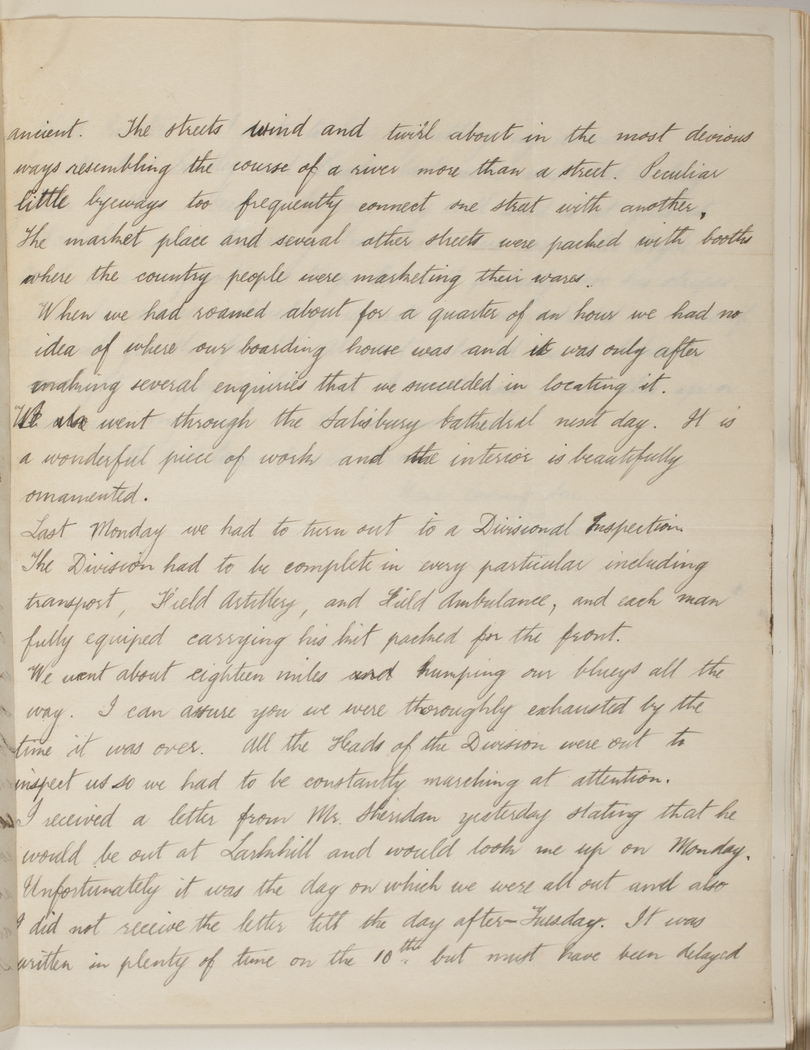 ancient. The streets wind and twirl about in the most devious
ways resembling the course of a river more than a street. Peculiar
little byeways too frequently connect one street with another.
The market place and several other streets were packed with booths
where the country people were marketing their wares.
When we had roamed about for a quarter of an hour we had no
idea of where our boarding house was and it was only after
making several enquiries that we succeeded in locating it.
We also went through the Salisbury Cathedral next day. It is
a wonderful piece of work and the interior is beautifully
ornamented.
Last Monday we had to turn out to a Divisional Inspection
The Division had to be complete in every particular including
transport, Field Artillery, and Field Ambulance, and each man
fully equiped carrying his kit packed for the front.
We went about eighteen miles and humping our blueys all the
way. I can assure you we were thoroughly exhausted by the
time it was over. All the Heads of the Division were out to
inspect us so we had to be constantly marching at attention.
I received a letter from Mr. Sheridan yesterday stating that he
would be out at Larkhill and would look me up on Monday.
Unfortunately it was the day on which we were all out and also
I did not receive the letter till the day after-Tuesday. It was
written in plenty of time on the 10th. but must have been delayed